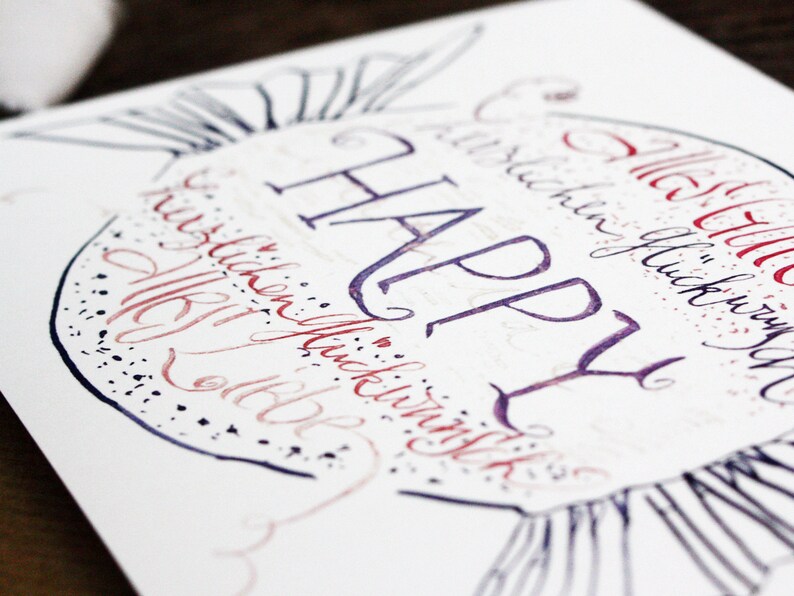 Alles Gute
herzlichen glückwunsch
HAPPY
herzlichen glückwunsch
Alles Liebe